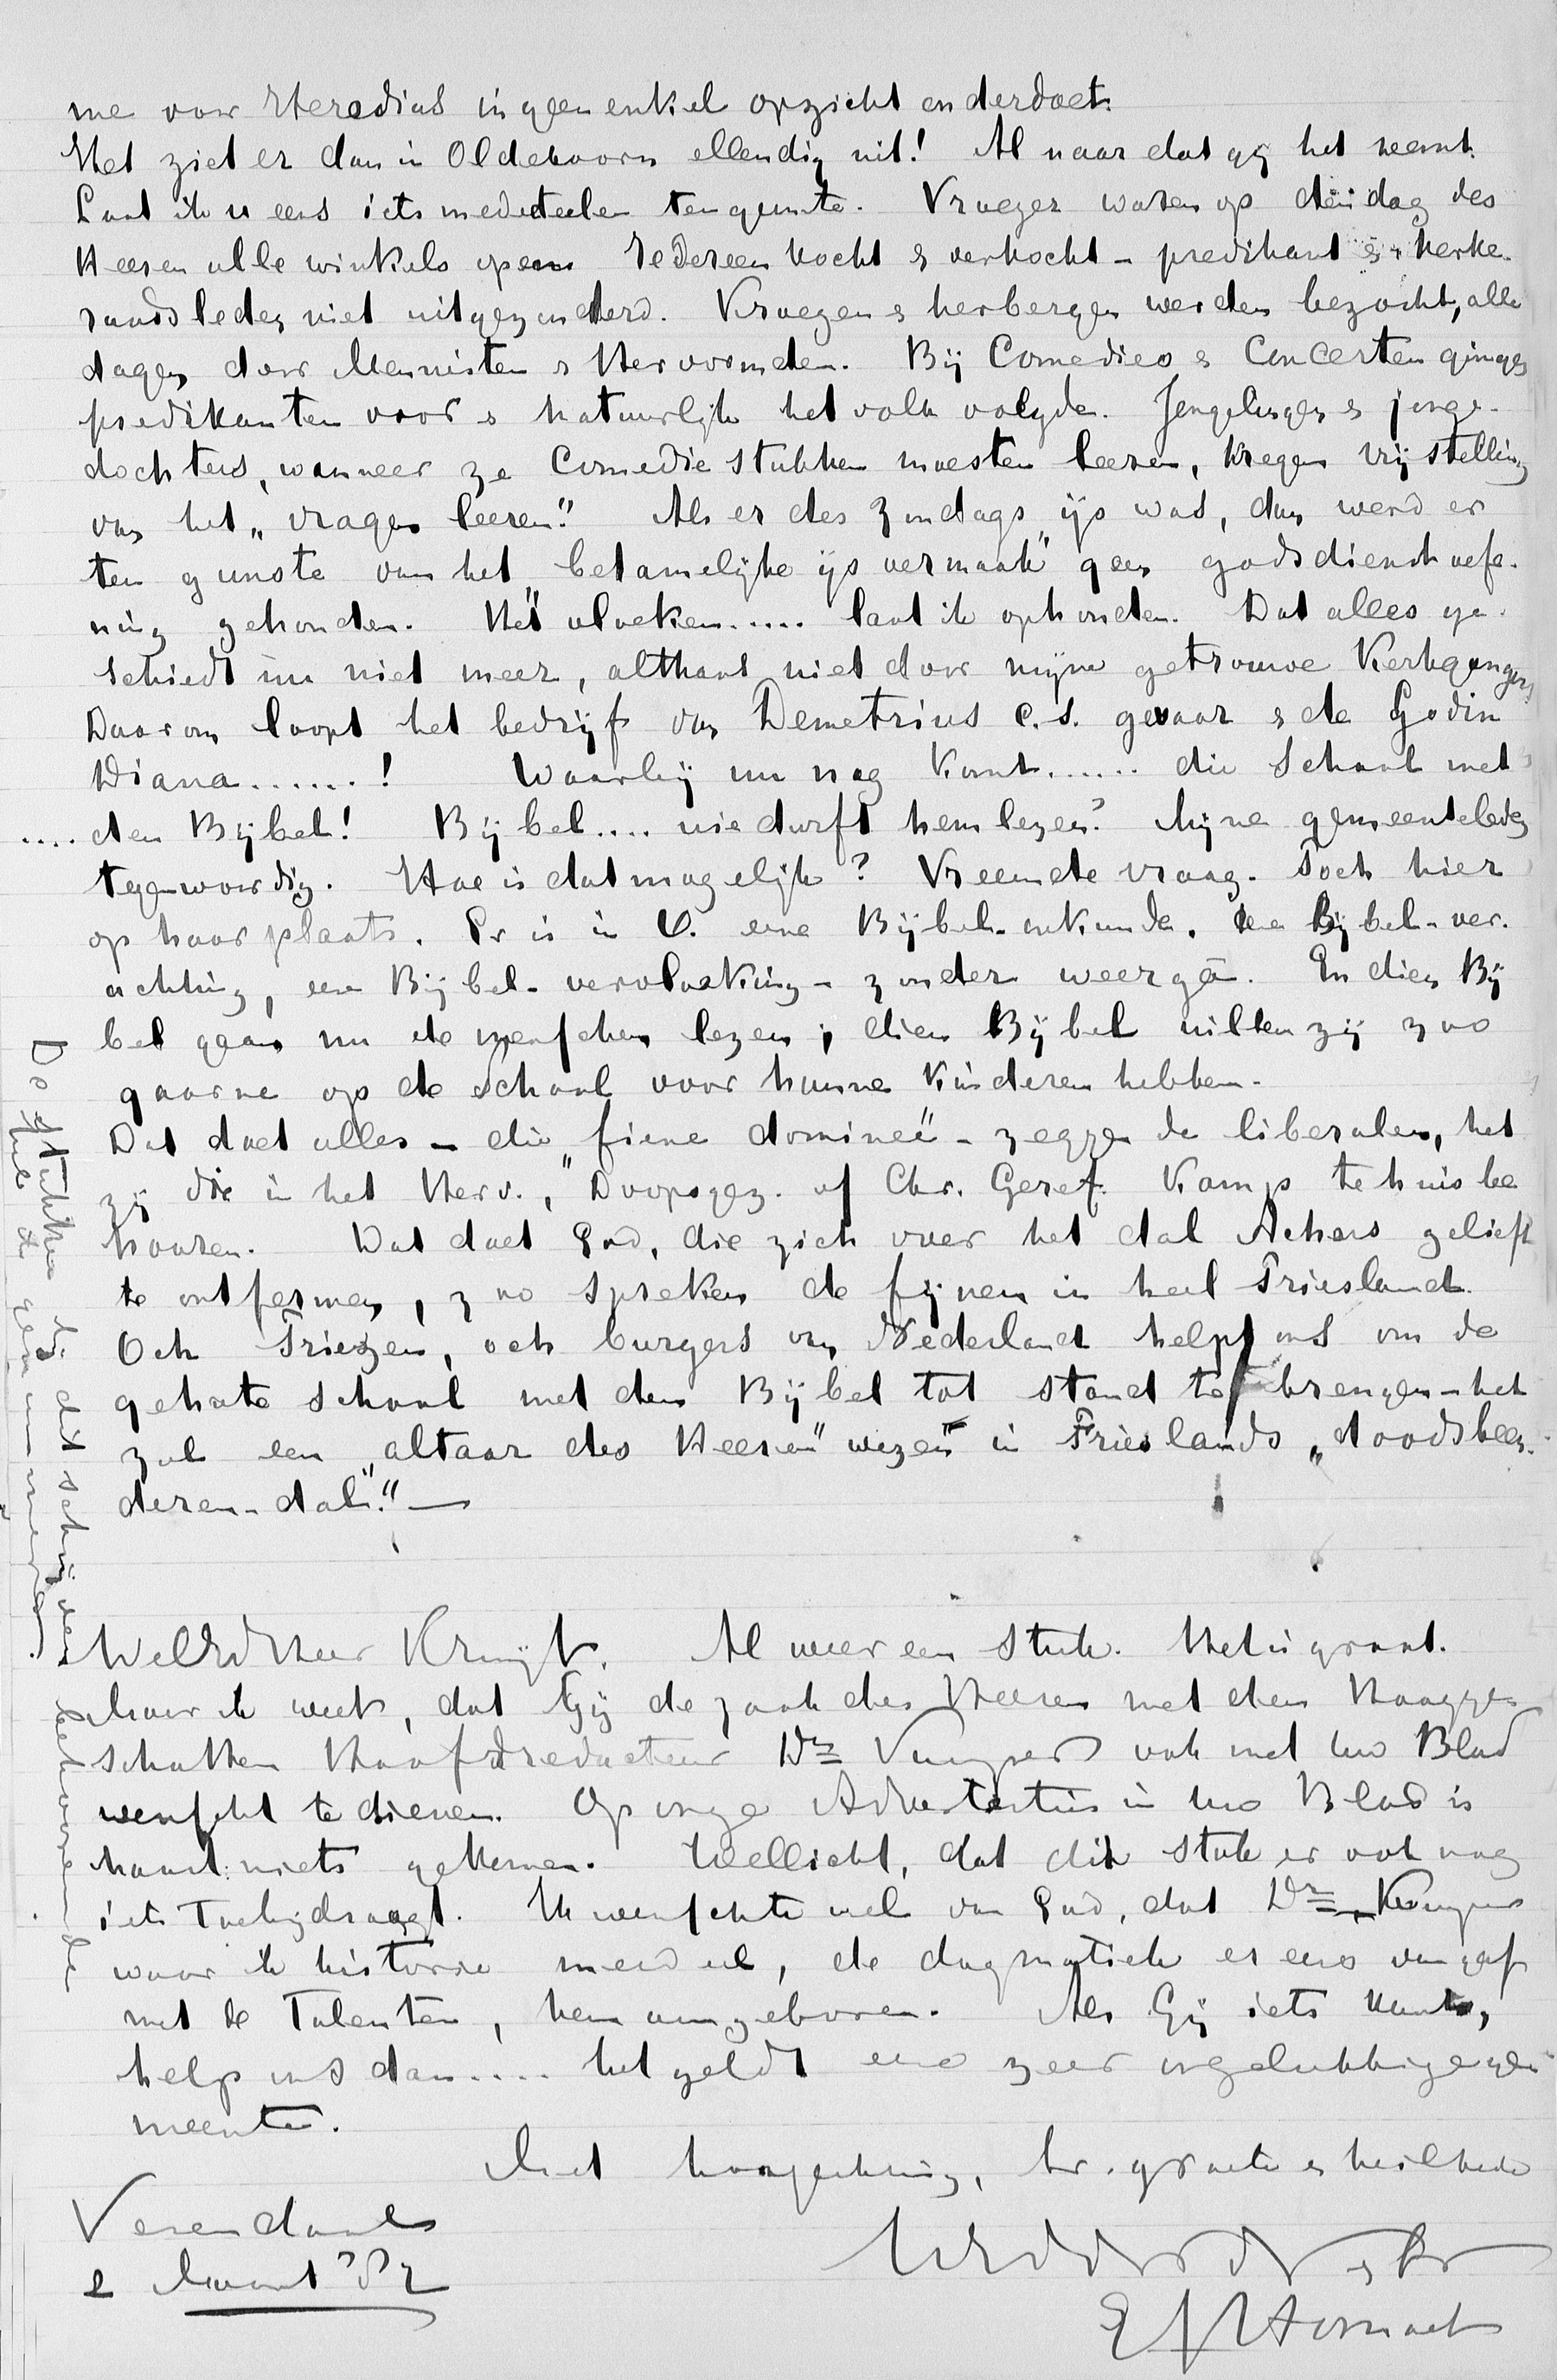 me voor Herodias in geen enkel opzicht onderdoet.
Het ziet er dan in Oldeboorn ellendig uit! Al naar dat gij het neemt.
Laat ik u eens iets mededeelen ten gunste. Vroeger waren op den dag des
Heeren alle winkels open. Iedereen kocht & verkocht - predikant & kerke-
raadsleden niet uitgezonderd. Kroegen & herbergen werden bezocht, alle
dagen door Mennisten & Hervormden. Bij Comedies & Concerten gingen
predikanten voor & natuurlijk het volk volgde. Jongelingen & jonge-
dochters, wanneer ze Comedie stukken moesten leeren, kregen vrijstelling
van het "vragen leeren." Als er des Zondags ijs was, dan werd er
ten gunste van het "betamelijke ijsvermaak" geen godsdienstoefe-
ning gehouden. Het vloeken..... laat ik ophouden. Dat alles ge-
schiedt nu niet meer, althans niet door mijne getrouwe Kerkgangers.
Daarom loopt het bedrijf van Demetrius c.s. gevaar & de Godin
Diana.......! Waarbij nu nog komt...... die School met
.... den Bijbel! Bijbel.... wie durft hem lezen? Mijne gemeenteleden
tegenwoordig. Hoe is dat mogelijk? Vreemde vraag. Toch hier
op haar plaats. Er is in O. eene Bijbel-onkunde, eene Bijbel-ver-
achting, eene Bijbel-vervloeking - zonder weergâ. En dien Bij
bel gaan nu de menschen lezen; dien Bijbel willen zij zoo
gaarne op de School voor hunne kinderen hebben.
Dat doet alles - die "fiene dominee" - zeggen de liberalen, het
zij die in het Herv., Doopsgez. of Chr. Geref. Kamp te huis be
hooren. Dat doet God, die zich over het dal Achors gelieft
te ontfermen, zoo spreken de fijnen in heel Friesland.
Och Friezen, och burgers van Nederland helpt ons om de
gehate school met den Bijbel tot stand te brengen - het
zal een "altaar des Heeren" wezen in Frieslands "doodsbeen-
deren-dal"." —
De stukken
WelEd Heer Kruijt. Al weer een stuk. Het is groot.
Maar ik weet, dat Gij de zaak des Heeren met den Hoogge
schatten Hoofdredacteur Dr Kuyper ook met uw Blad
wenscht te dienen. Op onze Advertentie in uw Blad is
haast niets gekomen. Wellicht, dat dit stuk er ook nog
iets toebijdraagt. Ik wenschte wel van God, dat Dr Kuyper
waar ik historie , de dogmatiek er eens van gaf
met de Talenten, hem aangeboren. Als Gij iets kunt,
help ons dan.... het geldt eene zeer ongelukkige ge
meente.
Met hoogachting, br. groete & heilbede
Veenendaal
2 Maart '82